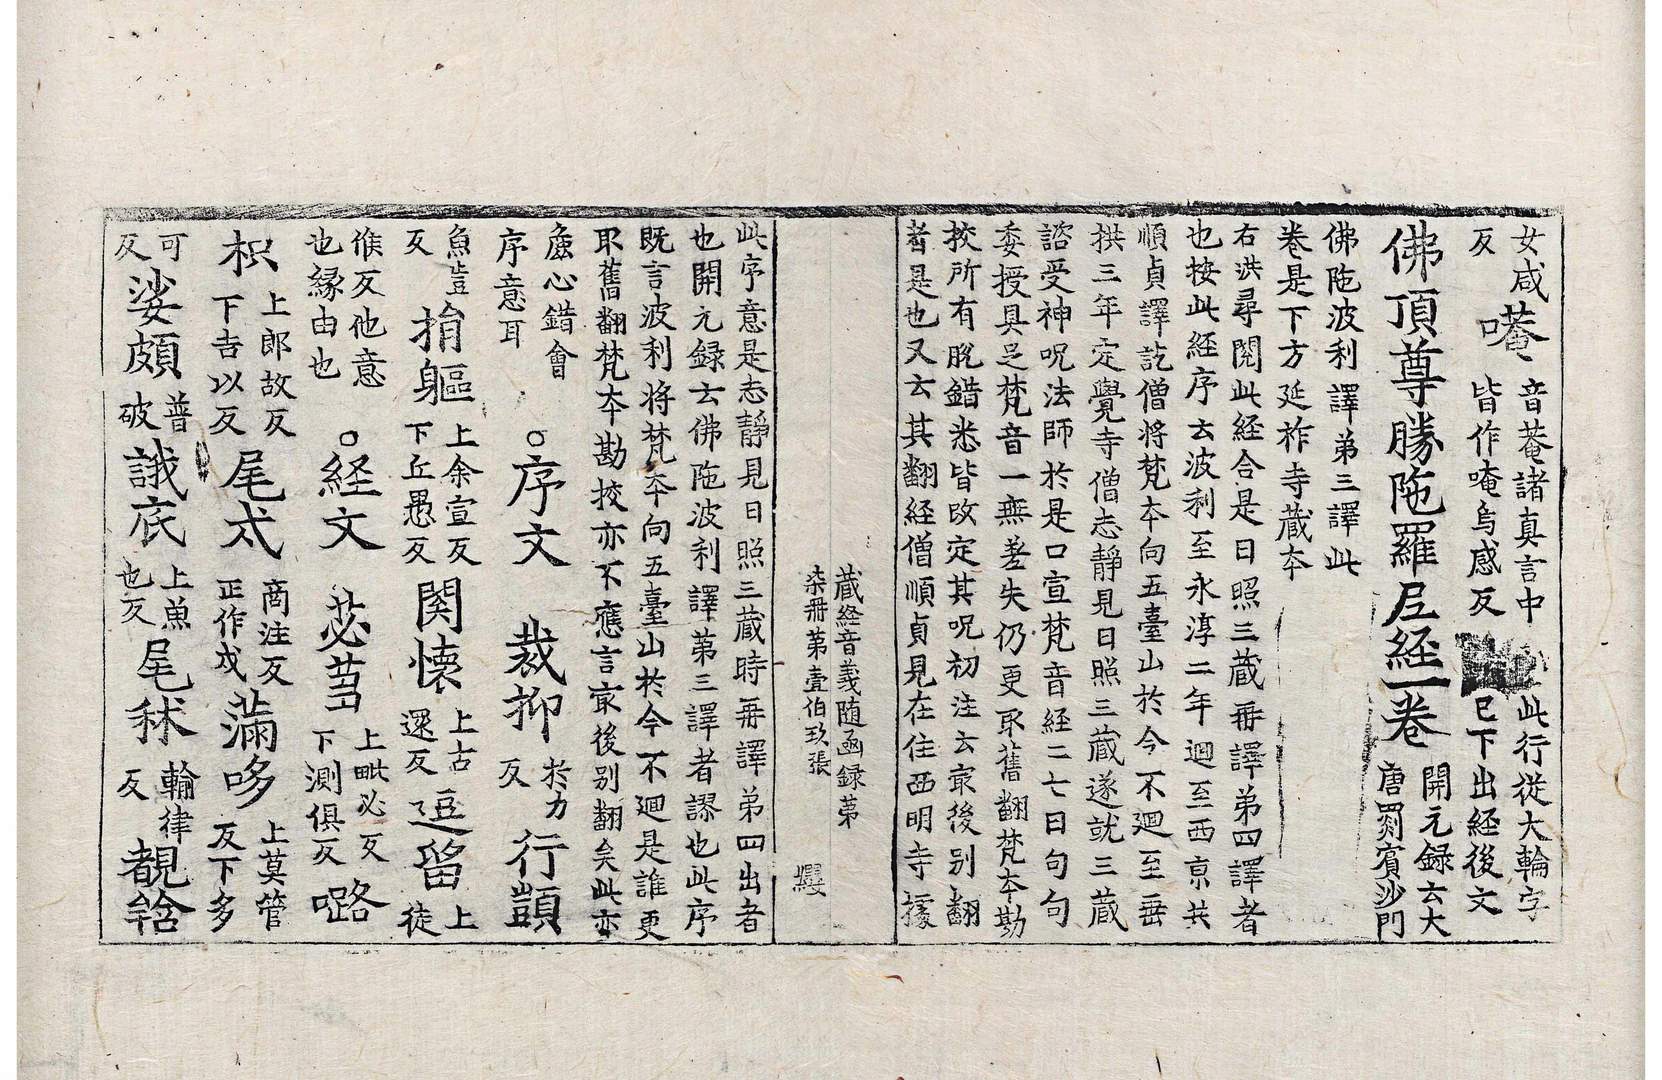 女咸
反
音菴諸真言中
皆作唵烏感反
此行從大輪字
已下出経後文
佛頂尊勝陁羅尼経一卷
開元録云大
唐罽賓沙門
佛陁波利譯第三譯此
卷是下方延祚寺藏夲
右洪尋閲此経合是日照三藏再譯第四譯者
也按此経序云波利至永淳二年迴至西亰共
順貞譯訖僧將梵夲向五臺山於今不迴至垂
拱三年定覺寺僧志静見日照三藏遂就三藏
諮受神呪法師於是口宣梵音経二七日句句
委授具足梵音一無差失仍更取舊翻梵夲勘
挍所有脫錯悉皆改定其呪初注云㝡後別翻
者是也又云其翻経僧順貞見在住西明寺據
藏経音義随函録第
柒冊第壹伯玖張
纓
此序意是志静見日照三藏時再譯第四出者
也開元録云佛陁波利譯第三譯者謬也此序
既言波利將梵夲向五臺山於今不迴是誰更
取舊翻梵夲勘挍亦不應言㝡後別翻矣此亦
麁心錯會
序意耳
○序文 裁抑
於力
反
行顗
魚豈
反
捐軀
上余宣反
下丘愚反
関懐
上古
還反
逗留
上
徒
候反他意
也縁由也
○経文 苾芻
上毗必反
下測俱反
枳
上郎故反
下吉以反
尾
商注反
正作戍
滿哆
上莫管
反下多
可
反
娑頗
普
破
誐底
上魚
也反
尾秫
輸律
反
覩